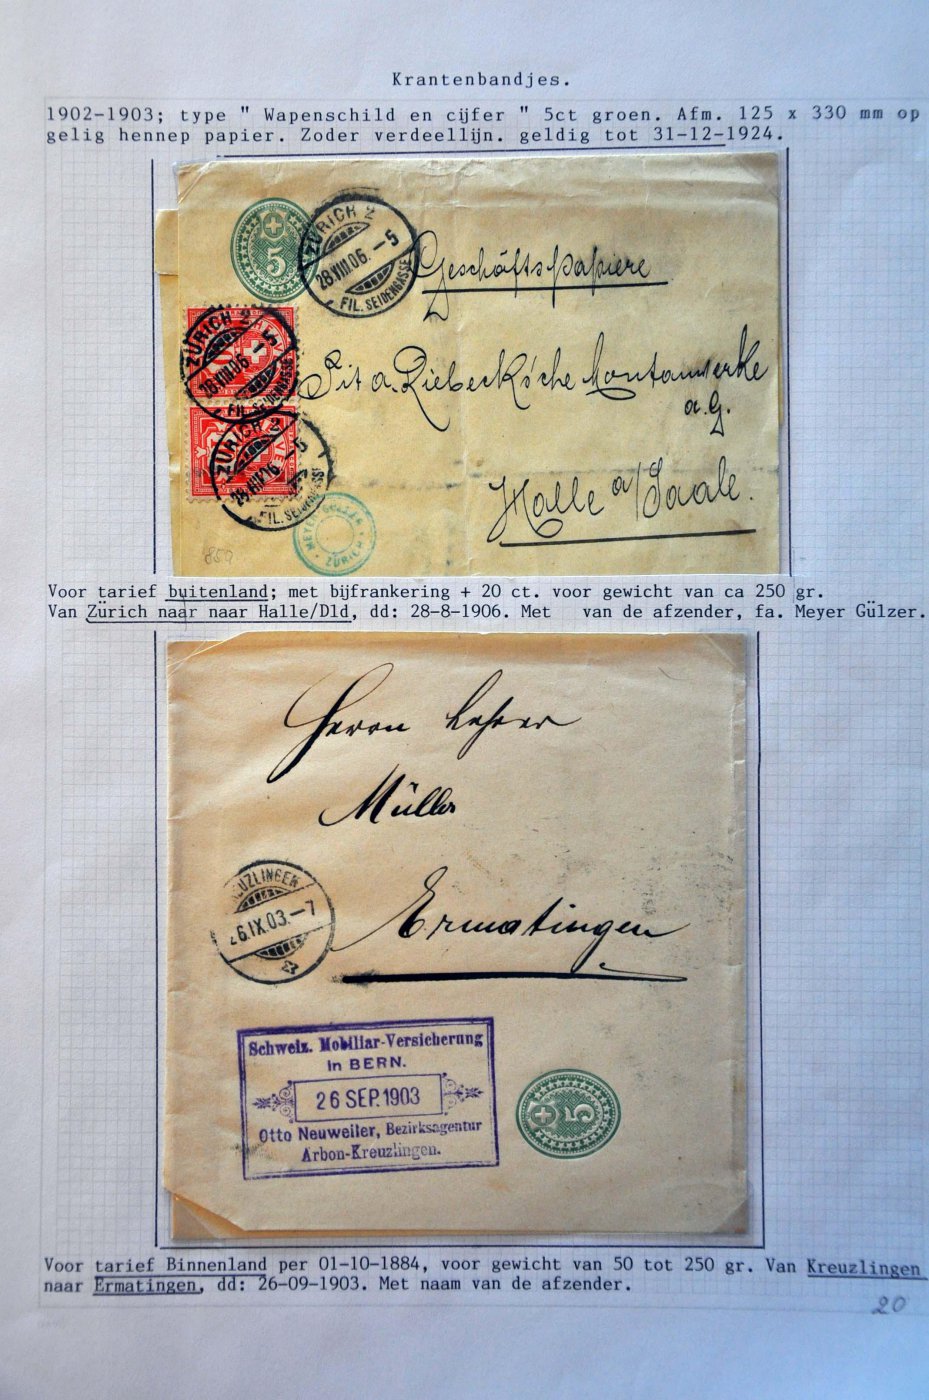 Krantenbandjes.
1902-1903; type " Wapenschild en cijfer " 5ct groen. Afm. 125 x 330 mm op
gelig hennep papier. Zoder verdeellijn. geldig tot 31-12-1924.
5
ZÜRICH 2
28.VIII.06.-5
FIL. SEIDENGASSE
Geschäftspapiere
ZÜRICH 2
28.VIII.06.-5
FIL. SEIDENGASSE
Tit a. Riebeck'sche Montanwerke
a.G.
ZÜRICH 2
28.VIII.06.-5
FIL. SEIDENGASSE
Halle a/Saale.
MEYER GÜLZER
ZÜRICH
850
Voor tarief buitenland; met bijfrankering + 20 ct. voor gewicht van ca 250 gr.
Van Zürich naar naar Halle/Dld, dd: 28-8-1906. Met van de afzender, fa. Meyer Gülzer.
Herrn Lehrer
Müller
KREUZLINGEN
26.IX.03.-7
Ermatingen
Schweiz. Mobiliar-Versicherung
in BERN.
26 SEP. 1903
Otto Neuweiler, Bezirksagentur
Arbon-Kreuzlingen.
5
Voor tarief Binnenland per 01-10-1884, voor gewicht van 50 tot 250 gr. Van Kreuzlingen
naar Ermatingen, dd: 26-09-1903. Met naam van de afzender.
20